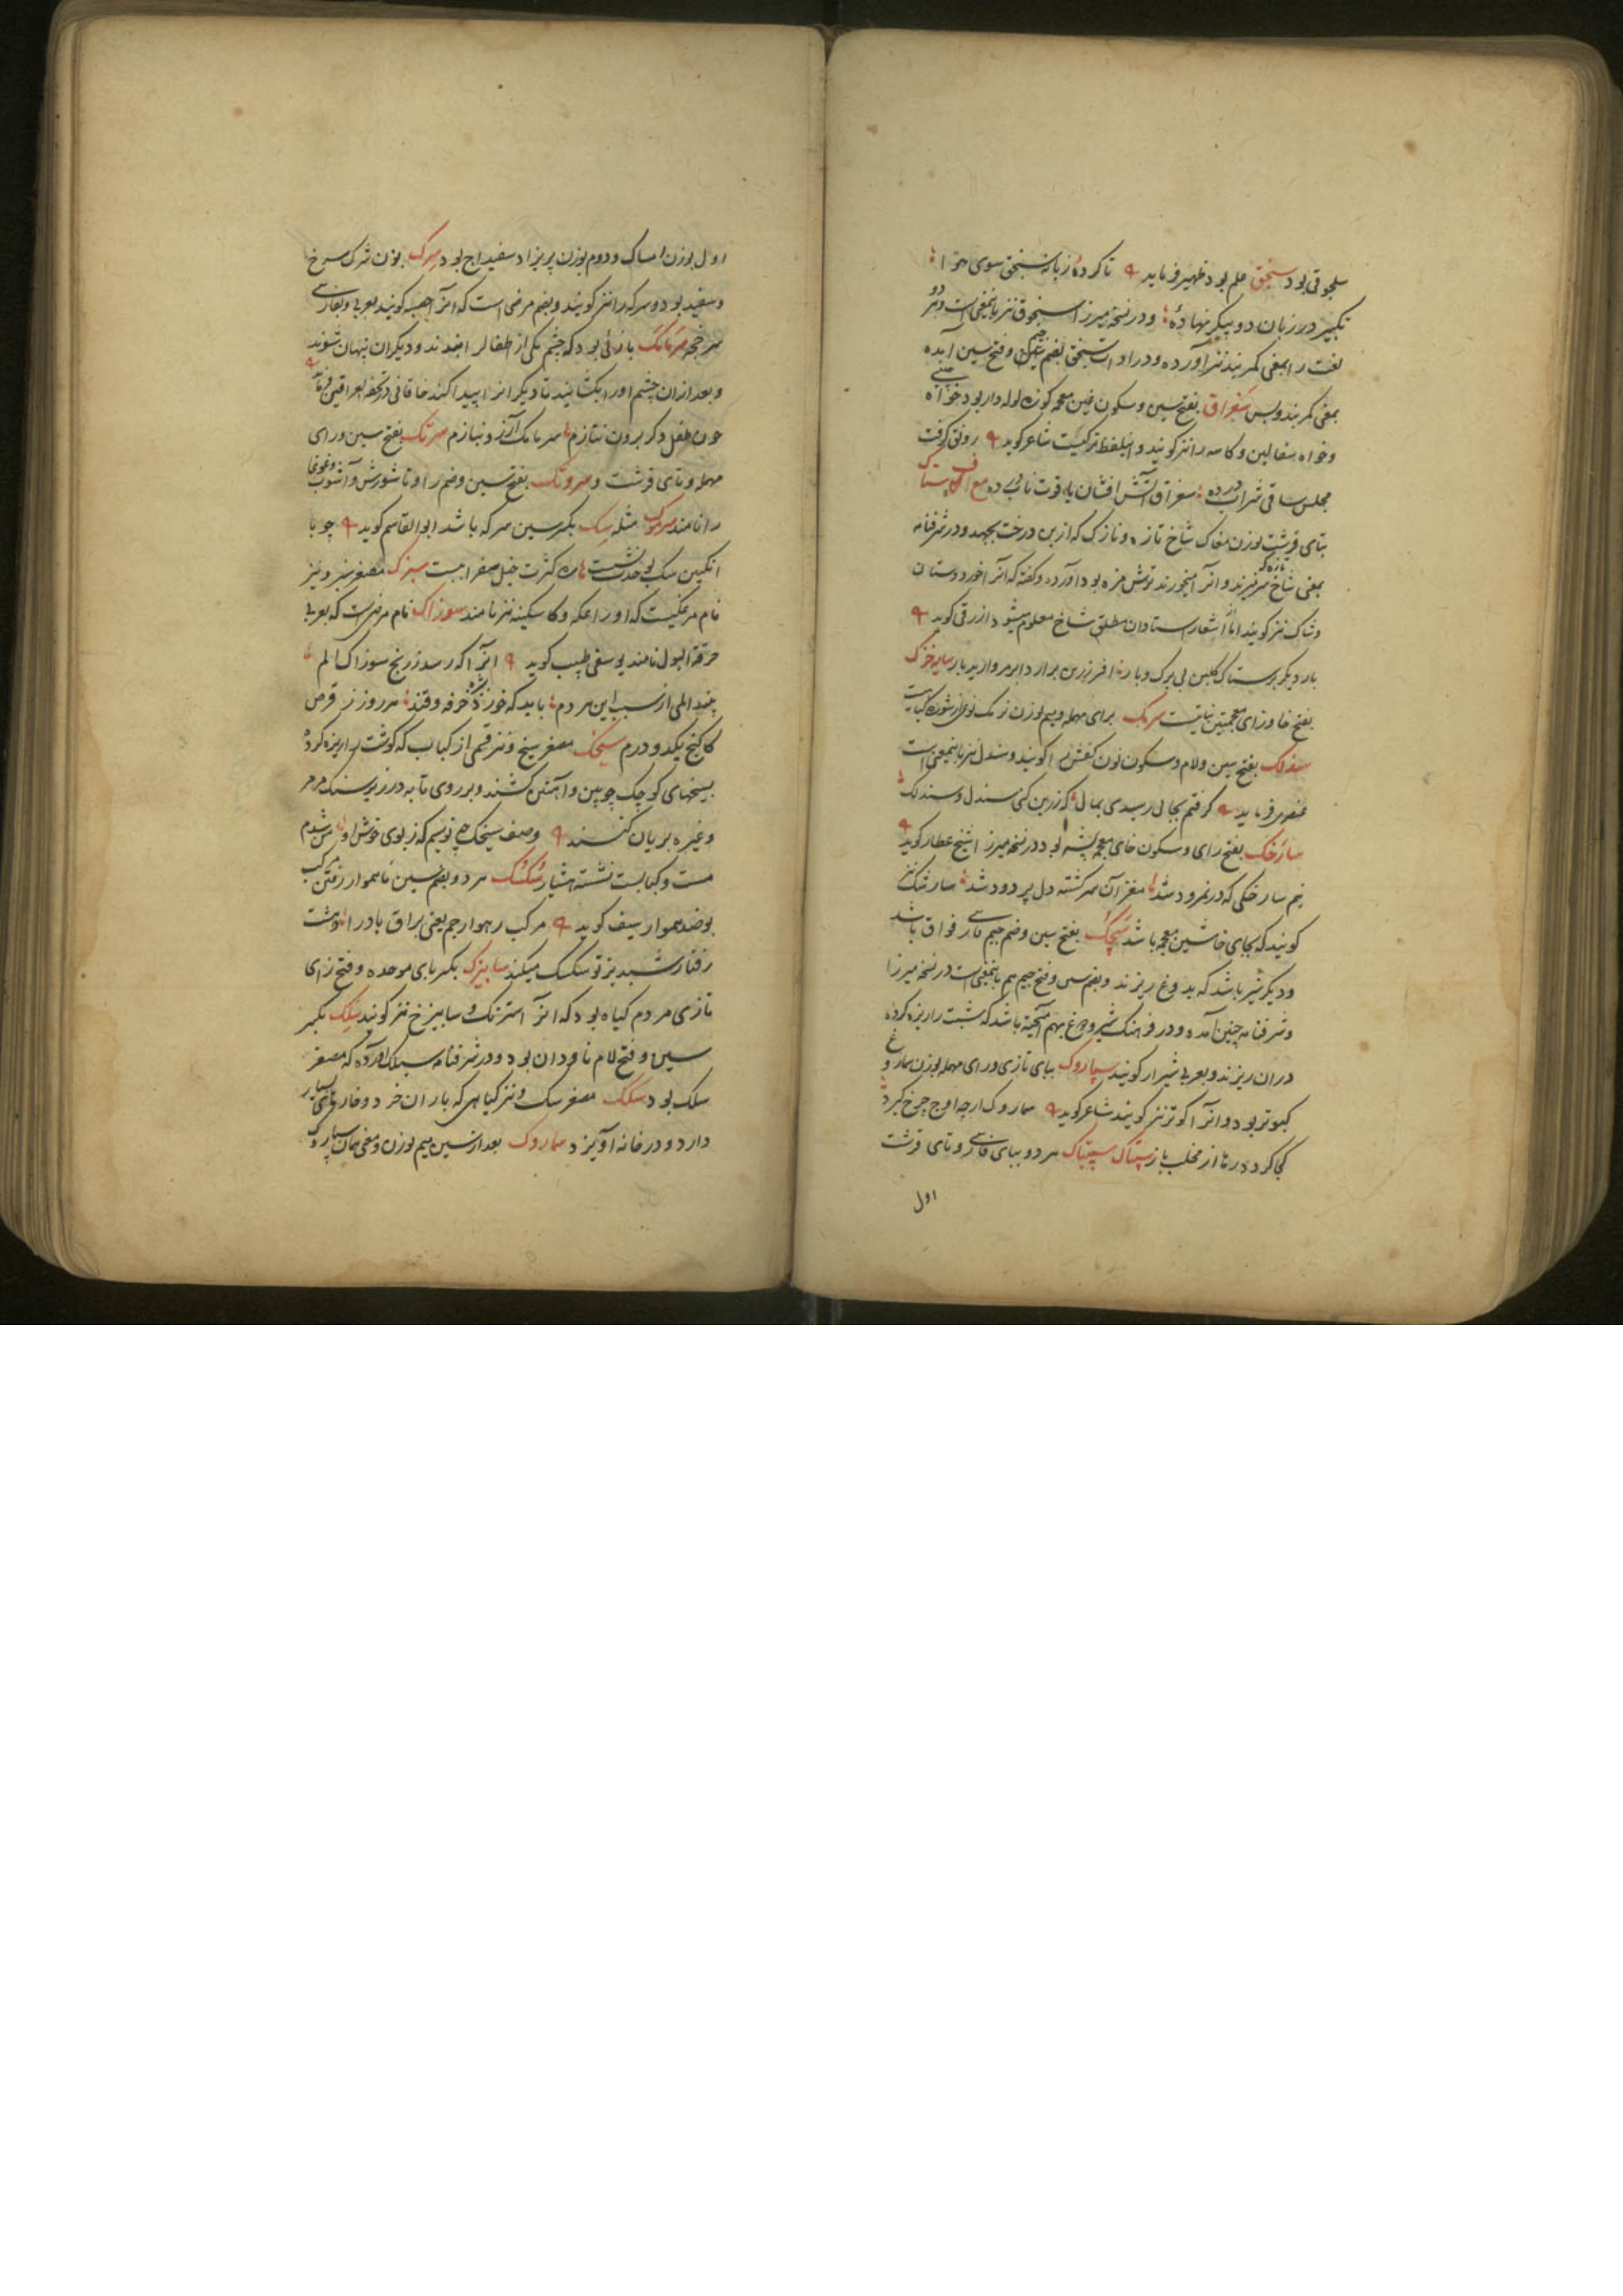 سلجوقی بود سنجق علم بود ظهیر فرماید تا کرده زبانه سنجق سوی هوا
تکبیر در زبان دو پیکر نهاده و در نسخه میرزا سنجوق نیز باینمعنی است و هر دو
لغت را بمعنی کمربند نیز آورده و در ادات سنجق بضم و فتح سین آمده
بمعنی کمربند و بس سغراق بفتح سین و سکون غین معجمه کوزه لوله دار بود خواه
و خواه سفالین و کاسه را نیز کویند و اینلفظ ترکیست شاعر کوید رونق کرفت
مجلس ساقی شراب در ده سغراق آتش افشان یاقوت ناب در ده مع الکاف ستاک
بتای قرشت بوزن مغاک شاخ تازه و نازک که از بن درخت بجهد و در شرفنامه
بمعنی شاخ تازه که سر نیز بزند و آنرا میخورند ترش مزه بود آورده و کفته که آنرا خورد و ستان
و ستاک نیز کویند اما از اشعار استادان مطلق شاخ معلوم میشود ازرقی کوید
بار دیکر بر ستاک کلبن بی برک و بار افسر زرین برآرد ابر مروارید بار سایه خزک
بفتح خا و زای معجمتین نباتیست سرمک برای مهمله و میم بوزن نرمک نوعی از شوره کیاهست
سندلک بفتح سین و لام و سکون نون کفش را کویند و سندل نیز باینمعنی است
عنصری فرماید کرفتم بجائی رسیدی بمال که زرین کنی سندل و سندلک
سارخک بفتح رای و سکون خای معجمه پشه بود در نسخه میرزا شیخ عطار کوید
نیم سارخکی که در نمرود شد مغز آن سرکشته دل پر دود شد سارشک نیز
کویند که بجای خا شین معجمه باشد سچک بفتح سین و ضم جیم فارسی فواق باشد
و دیکر شیر باشد که بدوغ ریزند و بضم سین و فتح جیم هم باینمعنی است در نسخه میرزا
و شرفنامه چنین آمده و در فرهنک شیر و دوغ بهم آمیخته باشد که شبت را ریزه کرده
در ان ریزند و بعربی شیراز کویند سپاروک ببای تازی و رای مهمله بوزن سماروغ
کبوتر بود و آنرا کوتر نیز کویند شاعر کوید سماروک ارچه اوج چرخ کیرد
کجا کردد رها از مخلب باز سپتاک سپیتاک هر دو ببای فارسی و تای قرشت
اول
اول بوزن امساک و دوم بوزن پریزاد سفیداج بود سرک بوزن ترک سرخ
و سفید بود و سرکه را نیز کویند و بضم مرضی است که آنرا حصبه کویند بعربی و بفارسی
سرخجه سرمامک بازئی بود که چشم یکی از طفال را بندند و دیکران پنهان شوند
و بعد از ان چشم او را بکشایند تا دیکرانرا پیدا کند خاقانی در تحفه العراقین فرماید
چون طفل دکر برون نتازم سرمامک آز و نیازم سرتک بفتح سین و رای
مهمله و تای قرشت و سروتک بفتح سین و ضم را و تا شورش و آشوب و غوغا
را نامند سرموک مثله سک بکسر سین سرکه باشد ابوالقاسم کوید چو با
انکبین سک بود کثرت خیل صفرا ببست سبزک مصغر سبز و نیز
نام مرغیست که او را عکه و کاسکینه نیز نامند سوزاک نام مرضیست که بعربی
حرقة البول نامند یوسفی طبیب کوید آنرا که رسد ز رنج سوزاک الم
بیند المی از سبب این هر دم باید که خورد خرفه و قند هر روز ز قرص
کاکنج یکدو درم سیخک مصغر سیخ و نیز قسمی از کباب که کوشت را ریزه کرده
بسیخهای کوچک چوبین و آهنین کشند و بر روی تابه در زیر سنک مرمر
و غیره بریان کنند وصف سیخک چه نویسم که ز بوی خوش او من شدم
مست و کبابست نشسته هشیار سکسک هر دو بضم سین ناهموار رفتن مرکب
بوضد هموار سیف کوید مرکب رهوار جم یعنی براق باد را وقت
رفتار شبدیز تو سکسک میکند سابیزک بکسر بای موحده و فتح زای
تازی مردم کیاه بود که آنرا استرنک و سابیزخ نیز کویند سلک بکسر
سین و فتح لام ناودان بود و در شرفنامه سبلک آورده که مصغر
سلک بود سکک مصغر سک و نیز کیاهی که بار ان خرد و خارهای بسیار
دارد و در خانه آویزد سماروک بعد از سین میم بوزن و معنی همان سپاروک